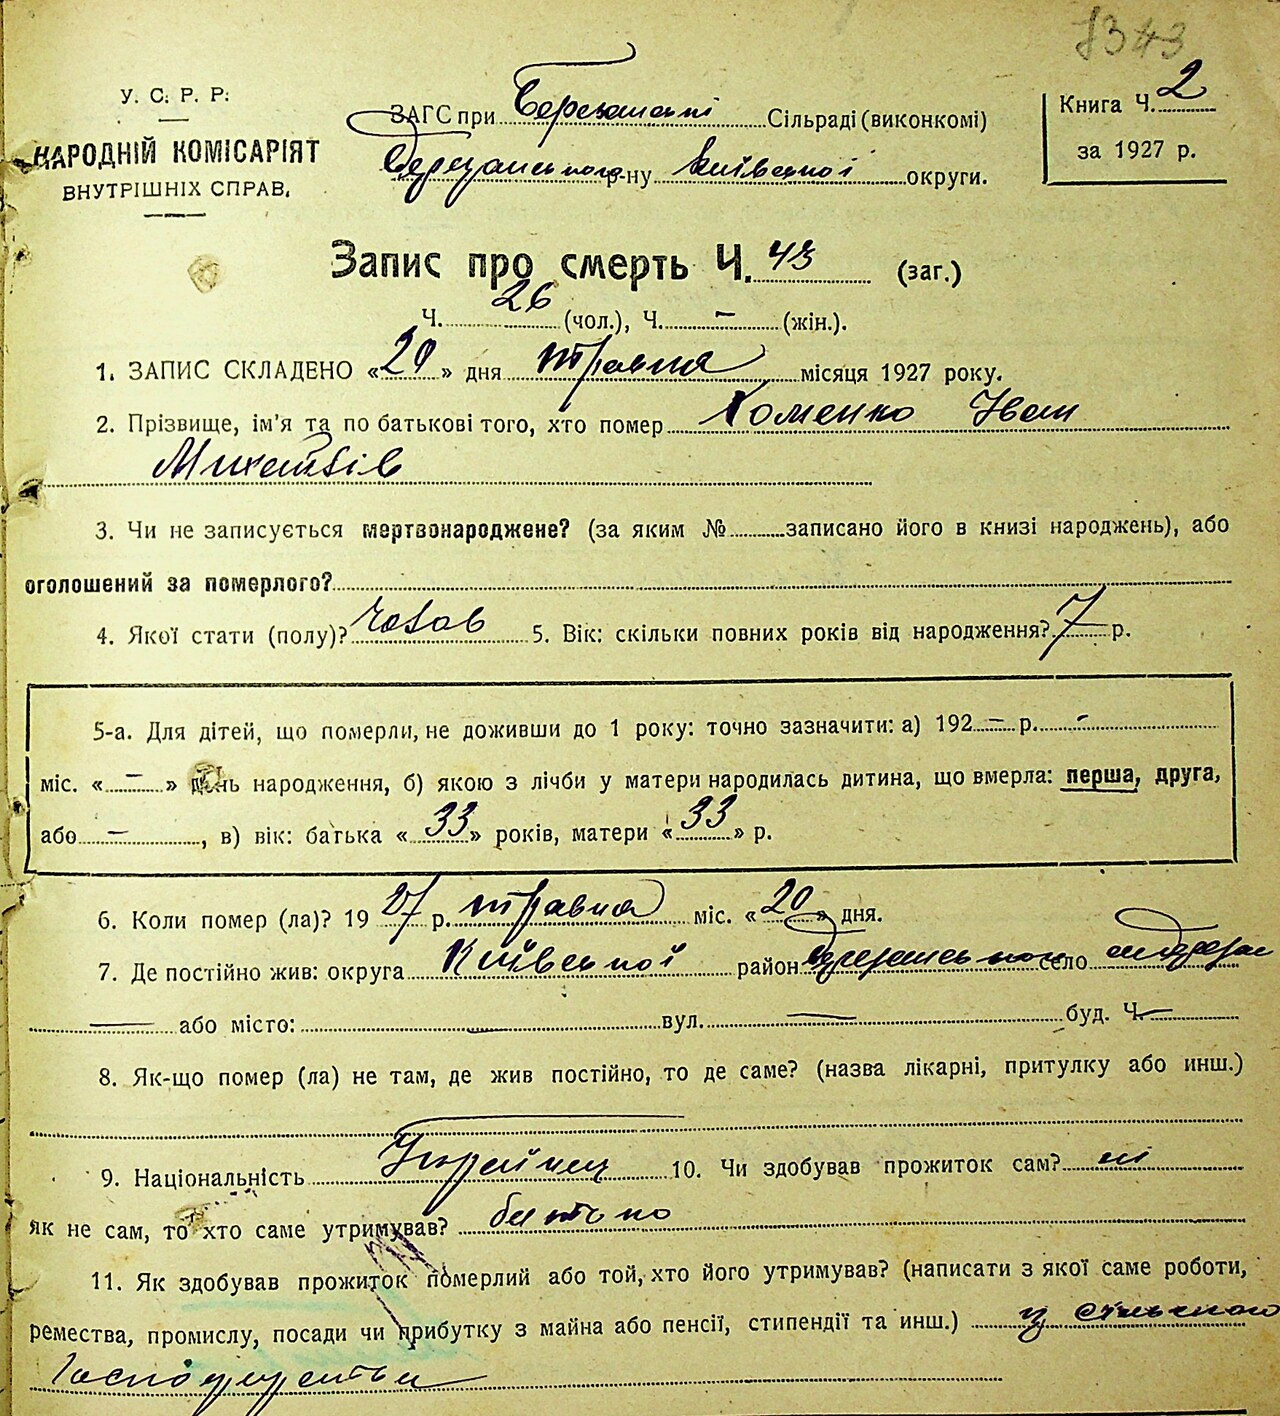 7343
У. С. Р. Р.
НАРОДНІЙ КОМІСАРІЯТ
ВНУТРІШНІХ СПРАВ.
ЗАГС при Березанські Сільраді (виконкомі)
Березанського р-ну Київської округи.
Книга Ч. 2
за 1927 р.
Запис про смерть Ч. 43 (заг.)
Ч. 26 (чол.), Ч. – (жін.).
1. ЗАПИС СКЛАДЕНО «20» дня травня місяця 1927 року.
2. Прізвище, ім'я та по батькові того, хто помер Хоменко Іван
Михайлів
3. Чи не записується мертвонароджене? (за яким № записано його в книзі народжень), або
оголошений за померлого?
4. Якої стати (полу)? чолов 5. Вік: скільки повних років від народження? 7 р.
5-а. Для дітей, що померли, не доживши до 1 року: точно зазначити: а) 192 – р. –
міс. « – » день народження, б) якою з лічби у матери народилась дитина, що вмерла: перша, друга,
або – , в) вік: батька « 33 » років, матери « 33 » р.
6. Коли помер (ла)? 19 27 р. травня міс. « 20 » дня.
7. Де постійно жив: округа Київської район Березанського село
— або місто: – вул. — буд. Ч. –
8. Як-що помер (ла) не там, де жив постійно, то де саме? (назва лікарні, притулку або инш.)
9. Національність Українец 10. Чи здобував прожиток сам? ні
Як не сам, то хто саме утримував? батько
11. Як здобував прожиток померлий або той, хто його утримував? (написати з якої саме роботи,
ремества, промислу, посади чи прибутку з майна або пенсії, стипендії та инш.) з сільского
господарства